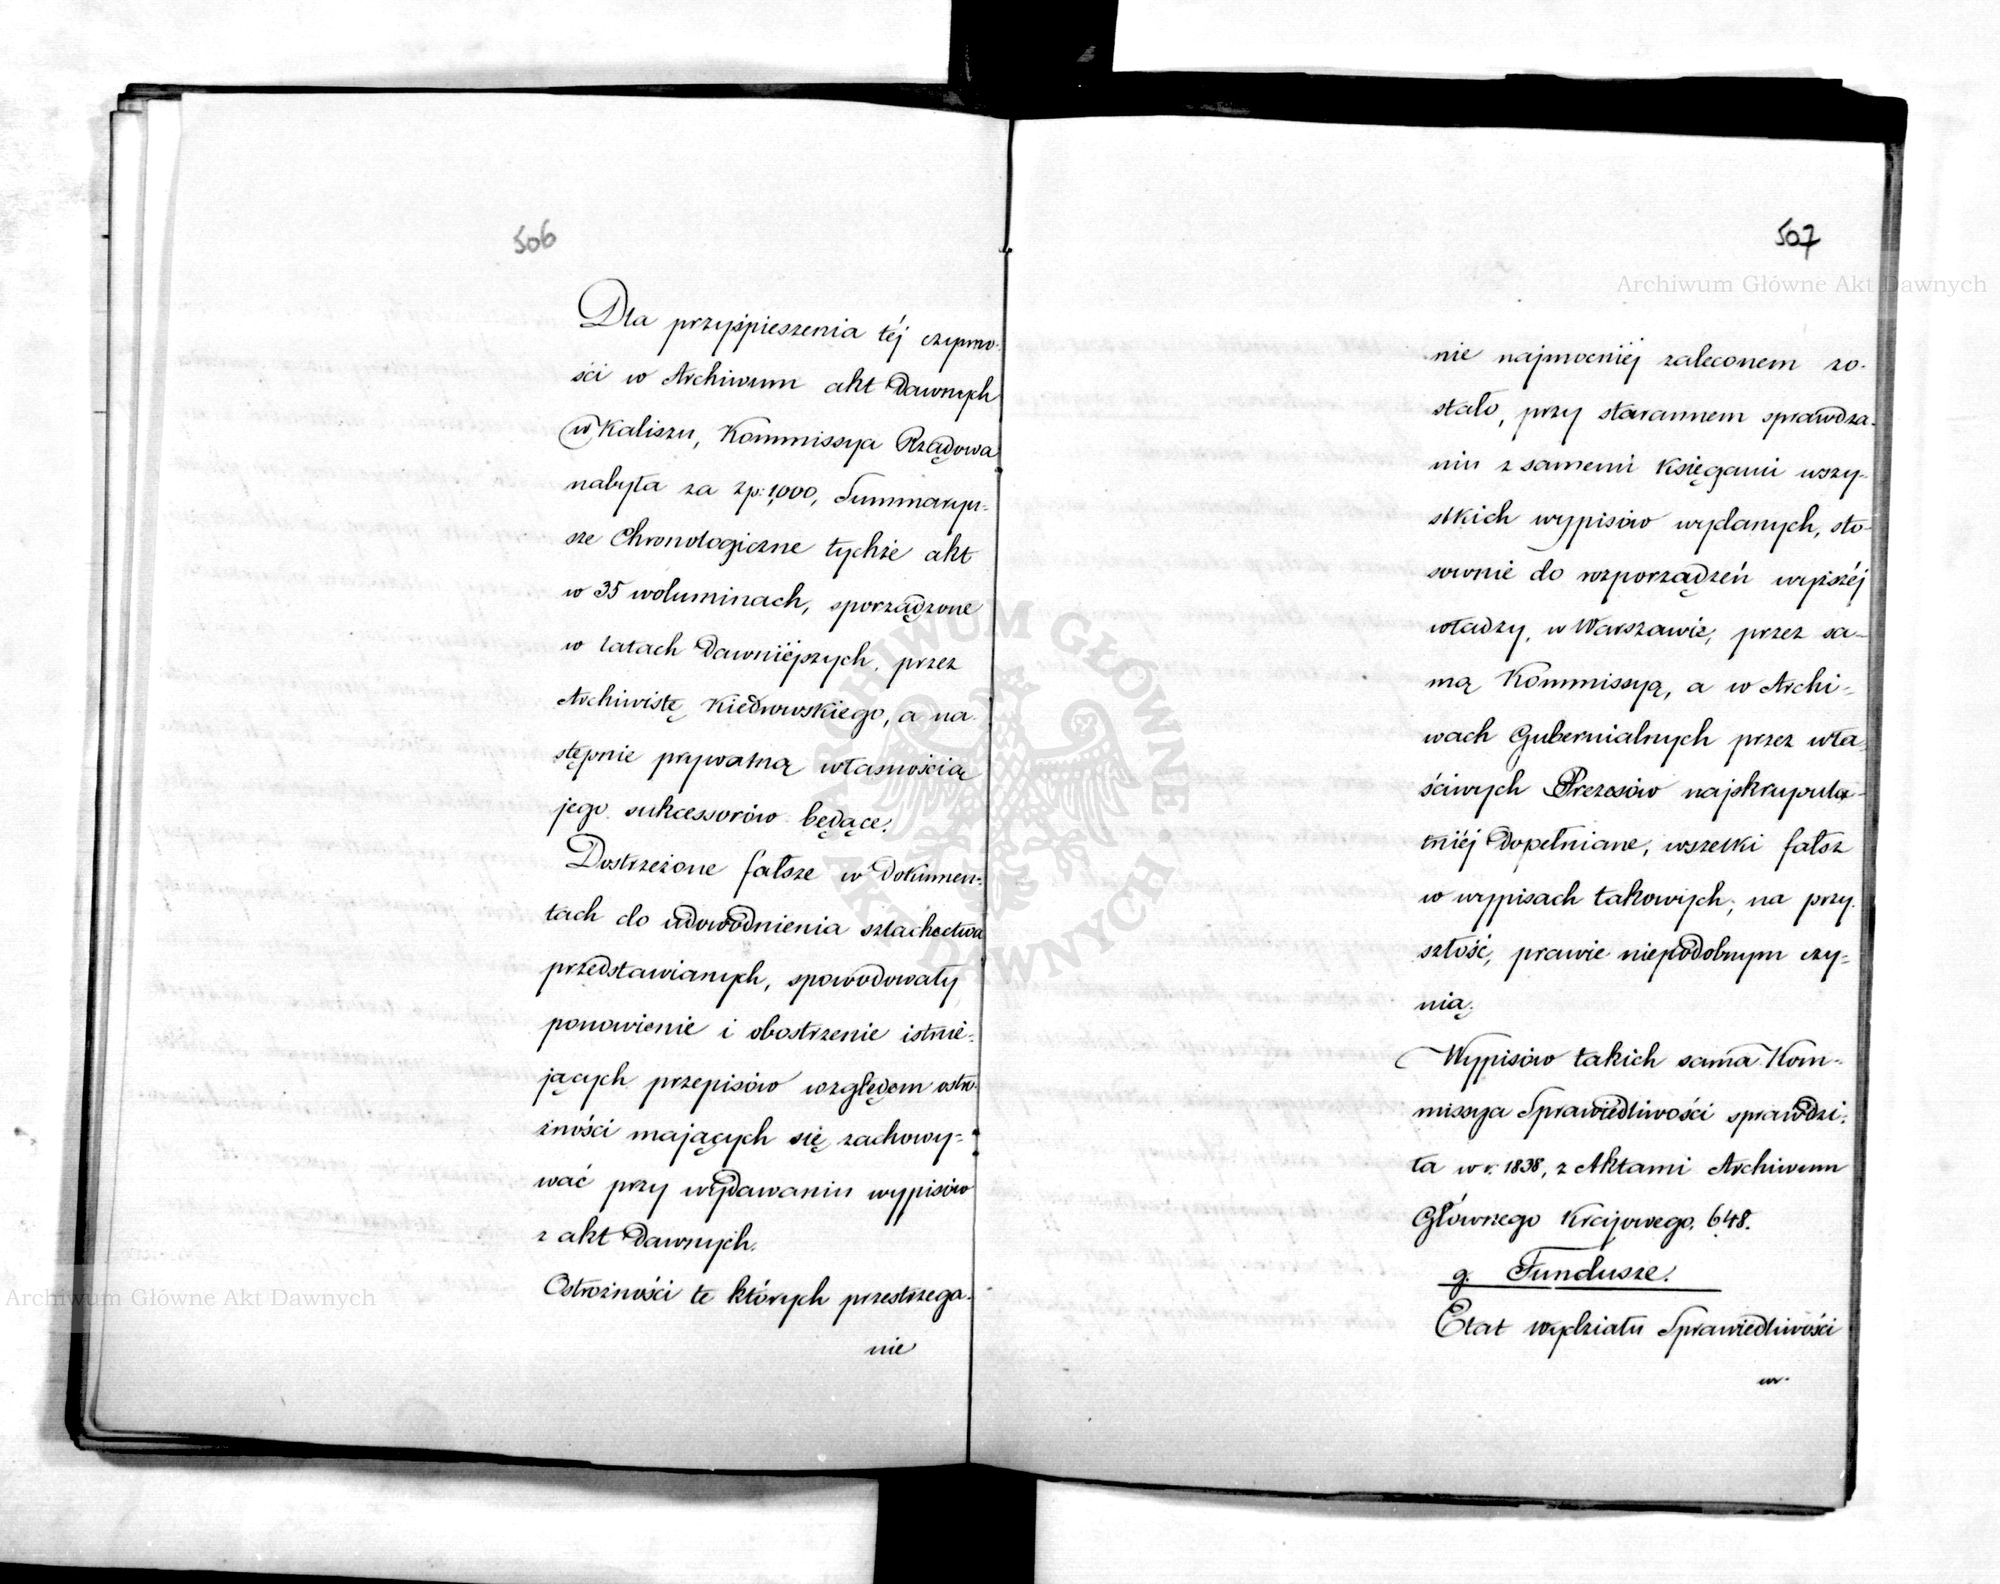 506
Dla przyśpieszenia téj czynno-
ści w Archiwum akt Dawnych
w Kaliszu, Kommissya Rządowa
nabyła za zp: 1,000, Summaryu-
sze Chronologiczne tychże akt
w 35 woluminach, sporządzone
w latach Dawniéjszych, przez
Archiwistę Kiedrowskiego, a na-
stępnie prywatną własnością
jego sukcessorów będące.
Dostrzeżone fałsze w Dokumen-
tach do udowodnienia szlachectwa
przedstawianych, spowodowały
ponowienie i obostrzenie istnie-
jących przepisów względem ostro-
żności mających się zachowy-
wać przy wydawaniu wypisów
z akt Dawnych.
Ostrożności te których przestrzega-
nie
507
nie najmocniéj zaleconem zo-
stało, przy starannem sprawdza-
niu z samemi Księgami wszy-
stkich wypisów wydanych, sto-
sownie do rozporządzeń wyższéj
władzy, w Warszawie, przez sa-
mą Kommissyą, a w Archi-
wach Gubernialnych przez wła-
ściwych Prezesów najskrupula-
tniéj Dopełniane, wszelki fałsz
w wypisach takowych, na przy-
szłość, prawie niepodobnym czy-
nią.
Wypisów takich sama Kom-
missya Sprawiedliwości sprawdzi-
ła w r. 1838, z Aktami Archiwum
Głównego Krajowego, 648.
g. Fundusze.
Etat wydziału Sprawiedliwości
w.
Archiwum Główne Akt Dawnych
Archiwum Główne Akt Dawnych
ARCHIWUM GŁÓWNE AKT DAWNYCH